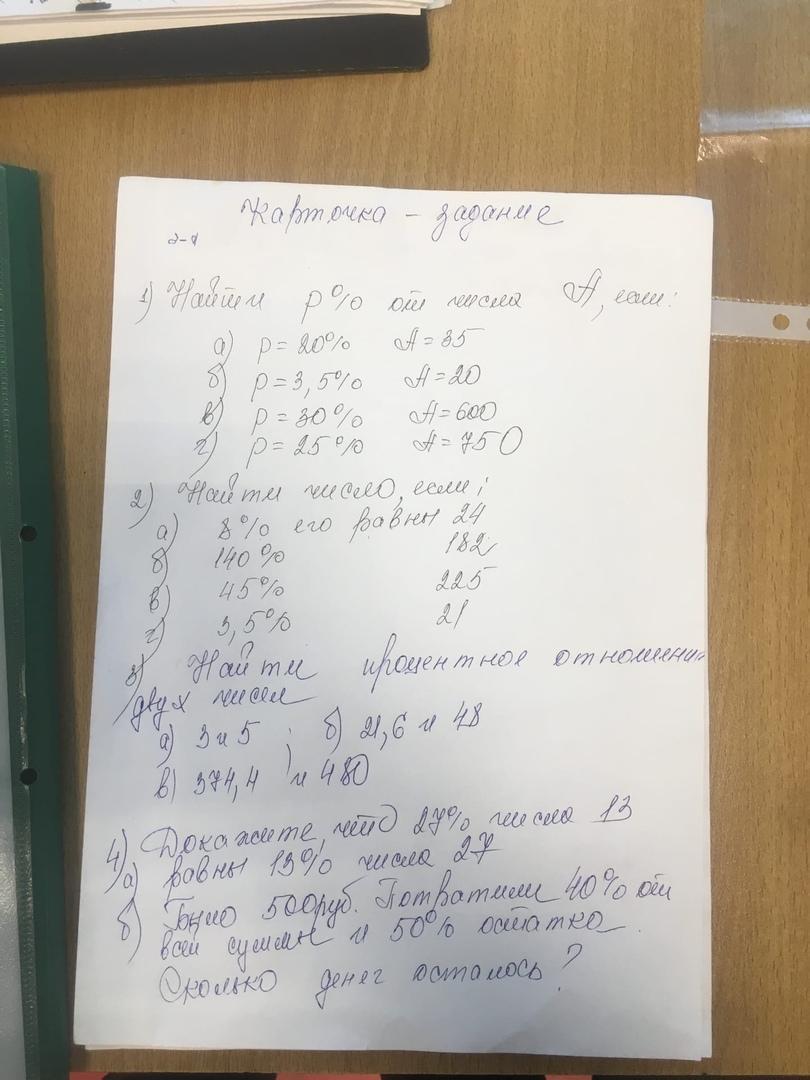 Карточка - задание
1) Найти p% от числа A, если:
а) p = 20% A = 35
б) p = 3,5% A = 20
в) p = 30% A = 600
г) p = 25% A = 750
2) Найти число, если:
а) 8% его равны 24
б) 140% 182
в) 45% 225
г) 3,5% 21
3) Найти процентное отношение
двух чисел
а) 3 и 5 ; б) 21,6 и 48
в) 374,4 и 480
4) Докажите, что 27% числа 13
а) равны 13% числа 27
б) Было 500 руб. Потратили 40% от
всей суммы и 50% остатка.
Сколько денег осталось?